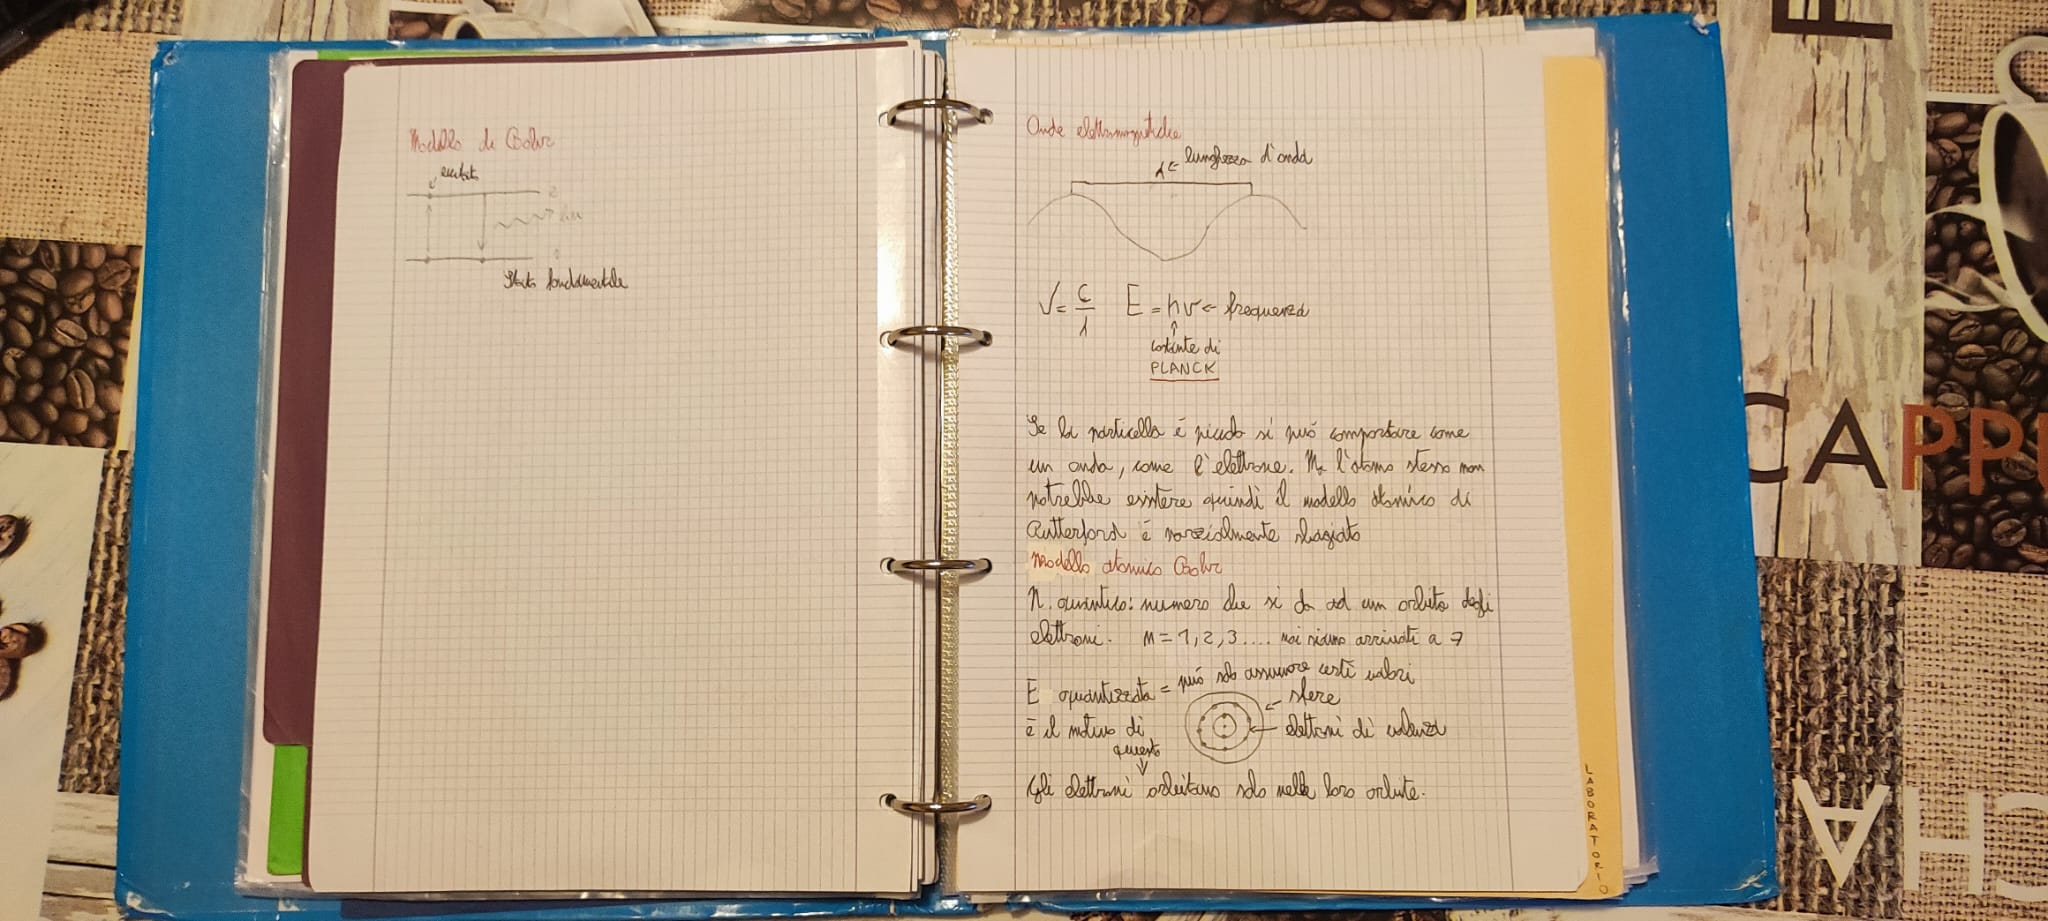 Modello di Bohr
eccitato
2
hν
1
Stato fondamentale
Onde elettromagnetiche
λ ← lunghezza d'onda
ν = c/λ E = hν ← frequenza
↑
costante di
PLANCK
Se la particella è piccola si può comportare come
un onda, come l'elettrone. Ma l'atomo stesso non
potrebbe esistere quindi il modello atomico di
Rutterford è parzialmente sbagiato
Modello atomico Bohr
N. quantico: numero che si da ad un orbita degli
elettroni. n = 1, 2, 3 .... noi siamo arrivati a 7
E quantizzata = può solo assumere certi valori
← sfere
è il motivo di
questo
← elettroni di valenza
↓
Gli elettroni orbitano solo nelle loro orbite.
LABORATORIO
CAPPU
CHA